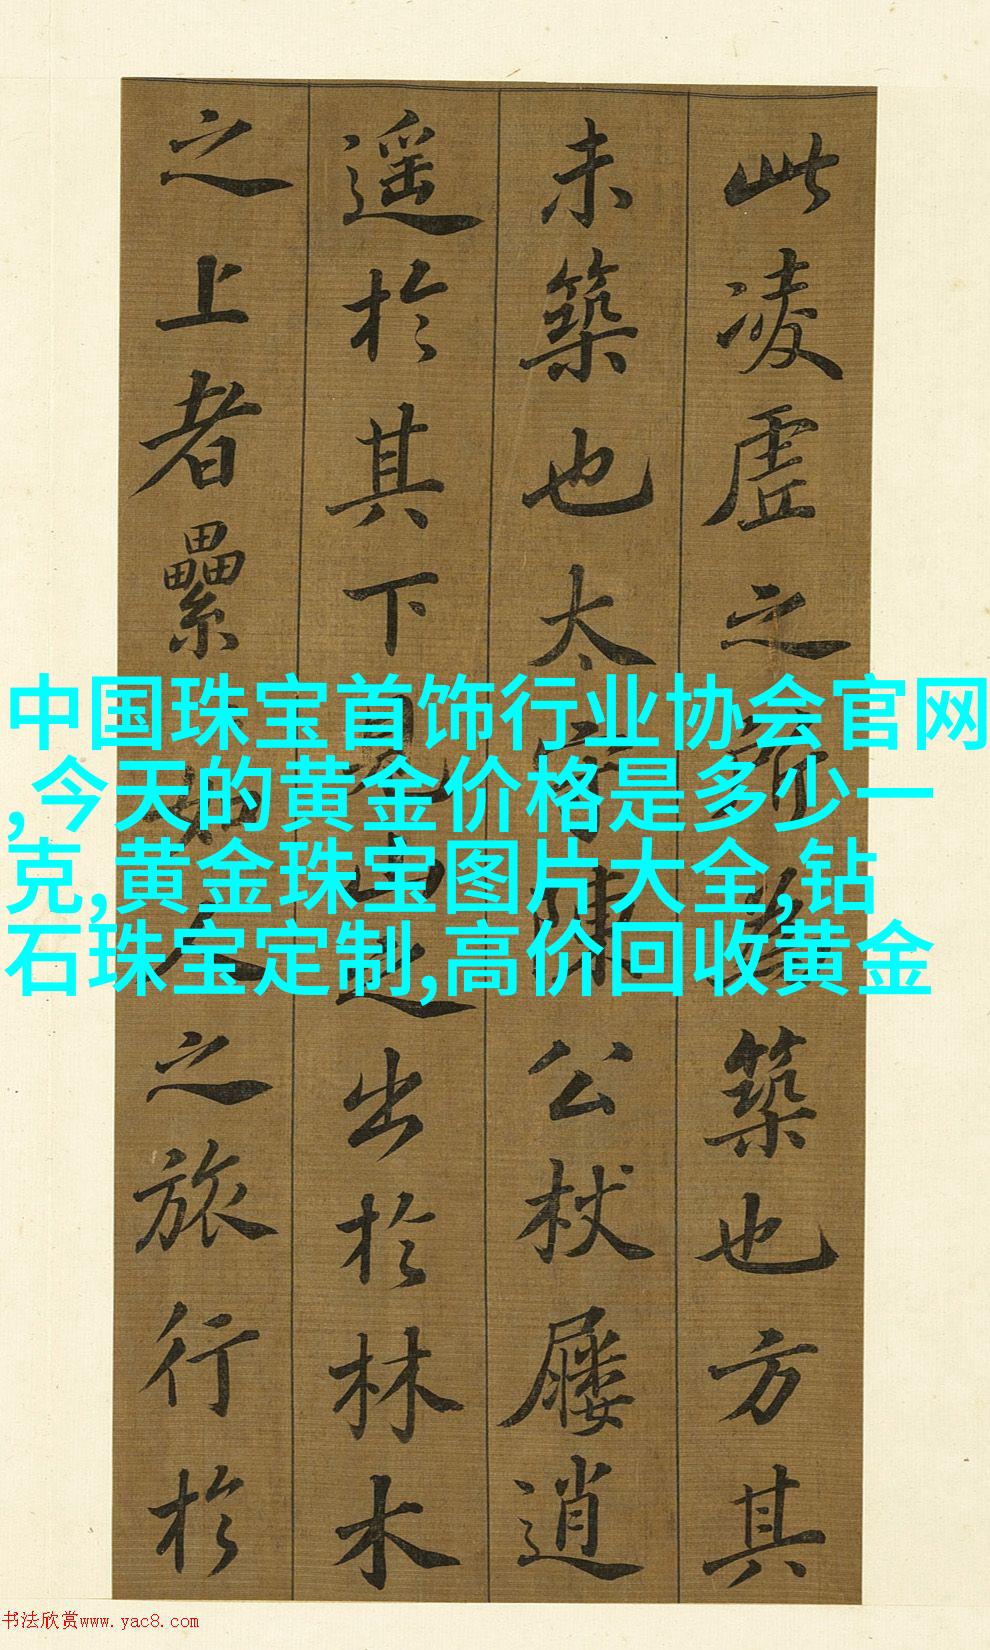 中国珠宝首饰行业协会官网
,今天的黄金价格是多少一
克,黄金珠宝图片大全,钻
石珠宝定制,高价回收黄金
此凌虛之所為築也方其
未築也太守陳公杖屨逍
遥於其下見山之出於林木
之上者纍如人之旅行於
书法欣赏www.yac8.com